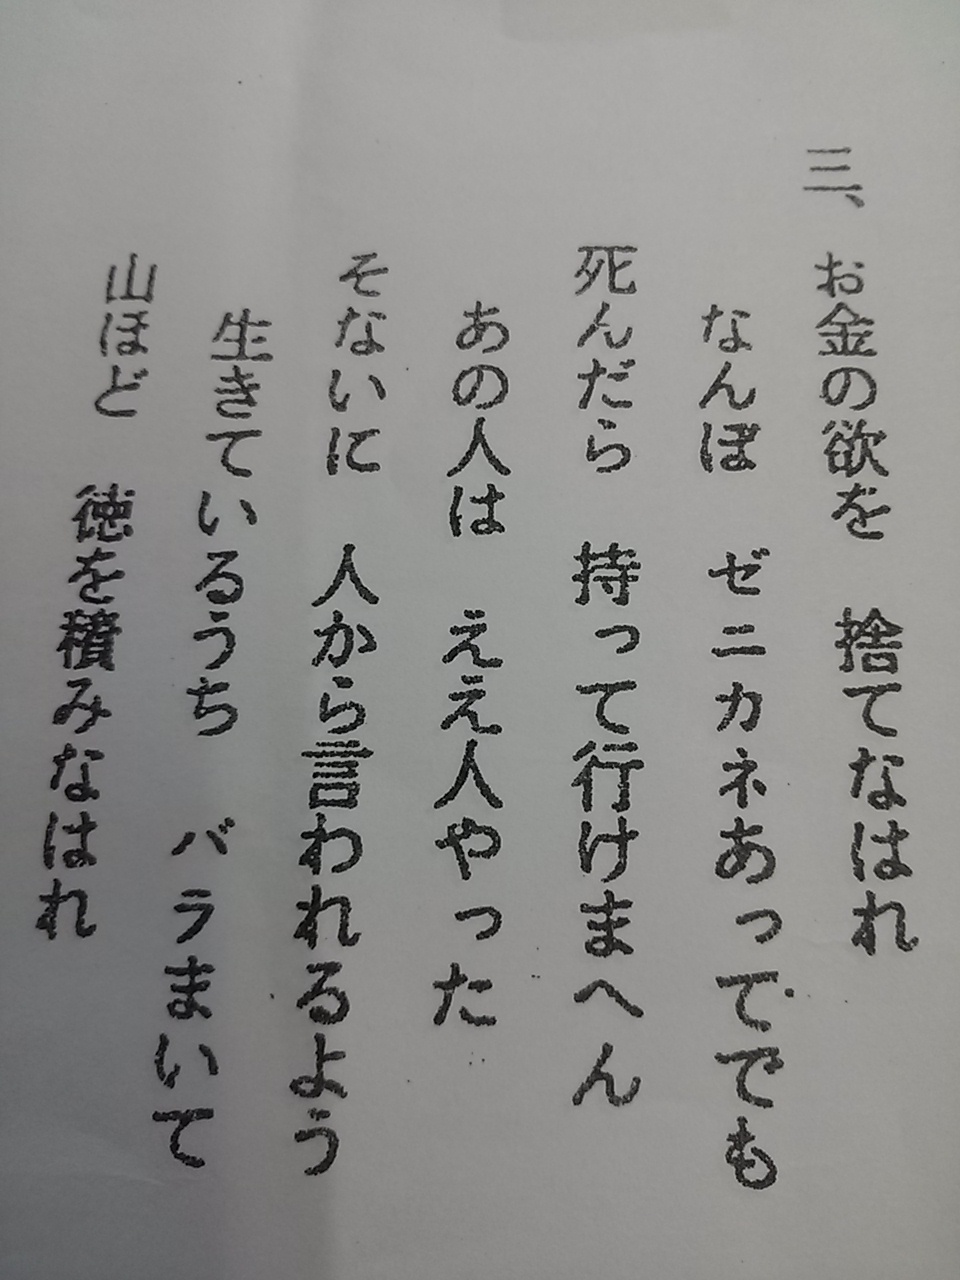 三、お金の欲を　捨てなはれ
なんぼ　ゼニカネあってでも
死んだら　持って行けまへん
あの人は　ええ人やった
そないに　人から言われるよう
生きているうち　バラまいて
山ほど　徳を積みなはれ